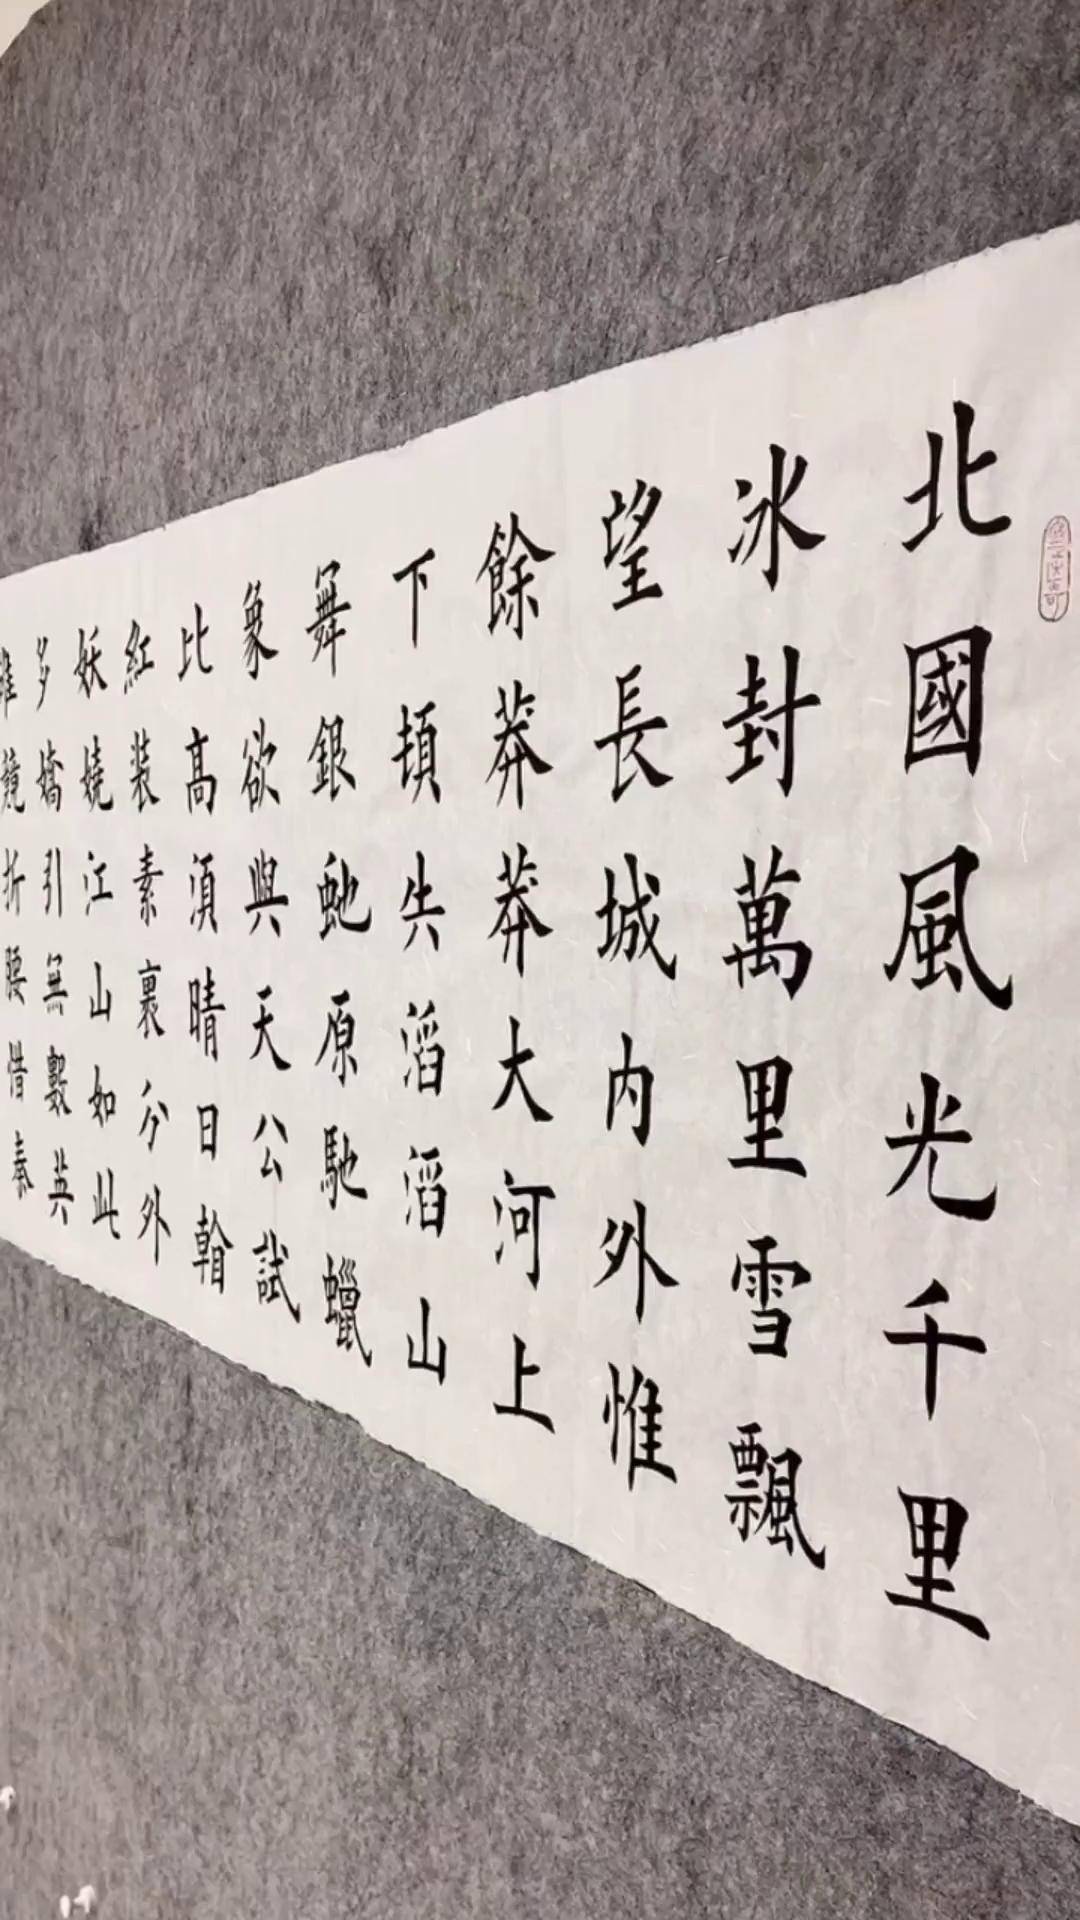 北國風光千里
冰封萬里雪飄
望長城内外惟
餘莽莽大河上
下頓失滔滔山
舞銀虵原馳蠟
象欲與天公試
比高須晴日
紅装素裹分外
妖嬈江山如此
多嬌引無數英
雄競折腰惜秦